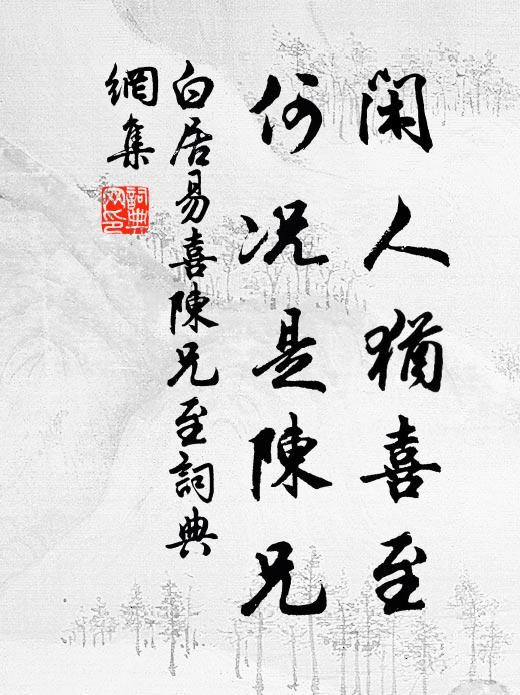 闲人猶喜至
何况是陳兄
白居易喜陳兄至詞典
網集
詞典
网印